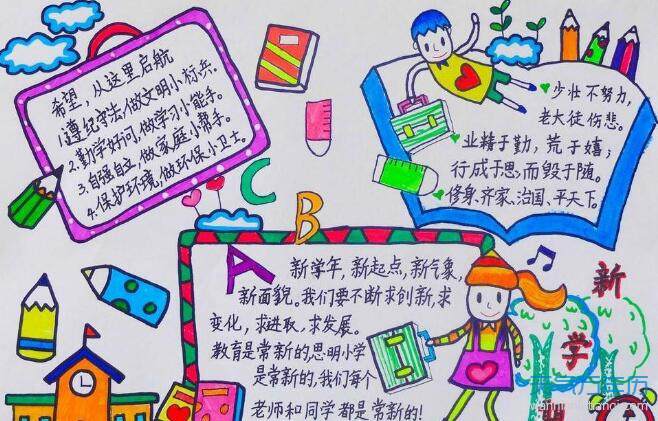 希望，从这里启航
1.遵纪守法，做文明小标兵。
2.勤学好问，做学习小能手。
3.自强自立，做家庭小帮手。
4.保护环境，做环保小卫士。
少壮不努力，
老大徒伤悲。
业精于勤，荒于嬉；
行成于思，而毁于随。
修身、齐家、治国、平天下。
C
B
A
新学年，新起点，新气象，
新面貌。我们要不断求创新，求
变化，求进取，求发展。
教育是常新的思明小学
是常新的，我们每个
老师和同学都是常新的！
新
学